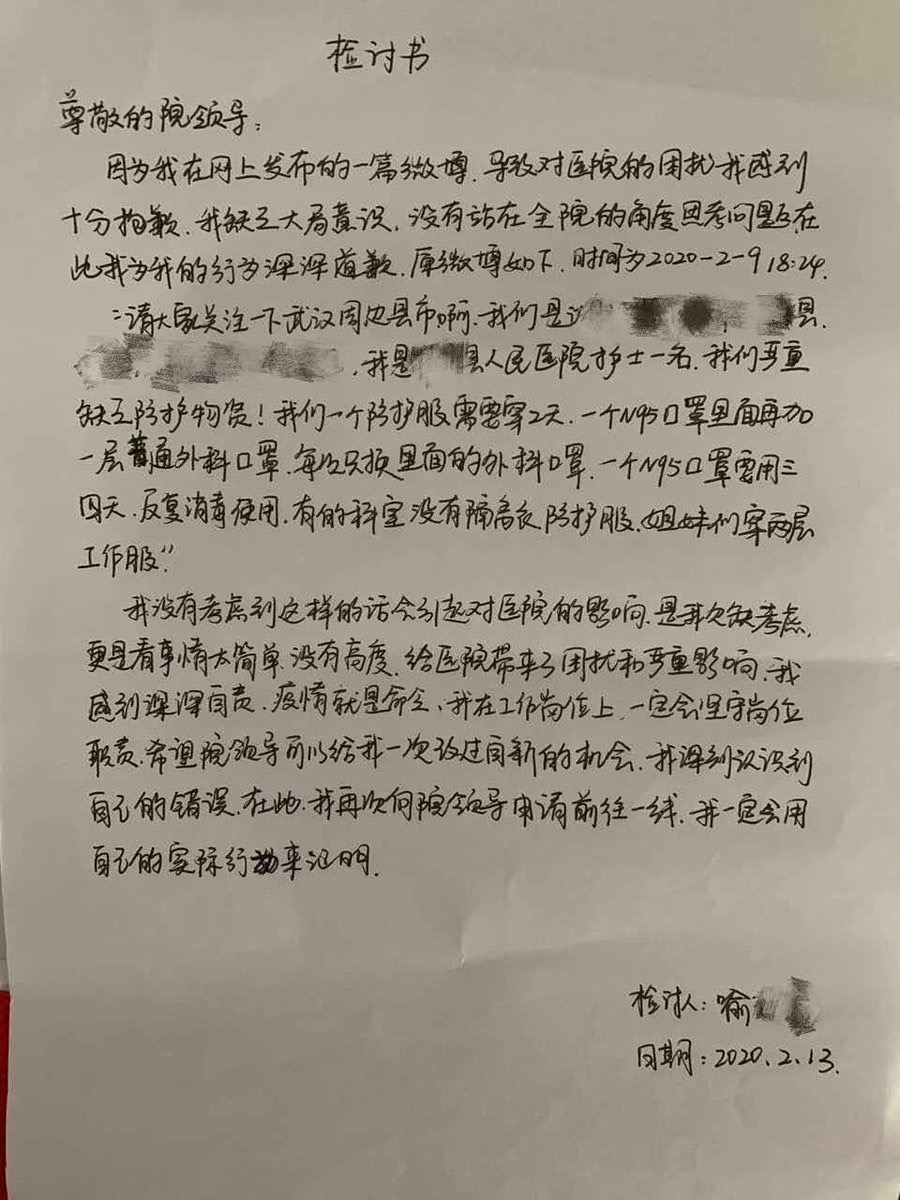 检讨书
尊敬的院领导：
因为我在网上发布的一篇微博，导致对医院的困扰我感到
十分抱歉，我缺乏大局意识，没有站在全院的角度思考问题，在
此我为我的行为深深道歉，原微博如下，时间为2020-2-9 18:24.
“请大家关注一下武汉周边县市啊，我们是 县，
，我是 县人民医院护士一名，我们严重
缺乏防护物资！我们一个防护服需要穿2天，一个N95口罩里面再加
一层普通外科口罩，每次只换里面的外科口罩，一个N95口罩要用三
四天，反复消毒使用，有的科室没有隔离衣防护服，姐妹们穿两层
工作服”
我没有考虑到这样的话会引起对医院的影响，是我欠缺考虑，
更是看事情太简单，没有高度，给医院带来了困扰和严重影响，我
感到深深自责，疫情就是命令，我在工作岗位上，一定会坚守岗位
职责，希望院领导可以给我一次改过自新的机会，我深刻认识到
自己的错误，在此，我再次向院领导申请前往一线，我一定会用
自己的实际行动来证明.
检讨人：喻
日期：2020.2.13.